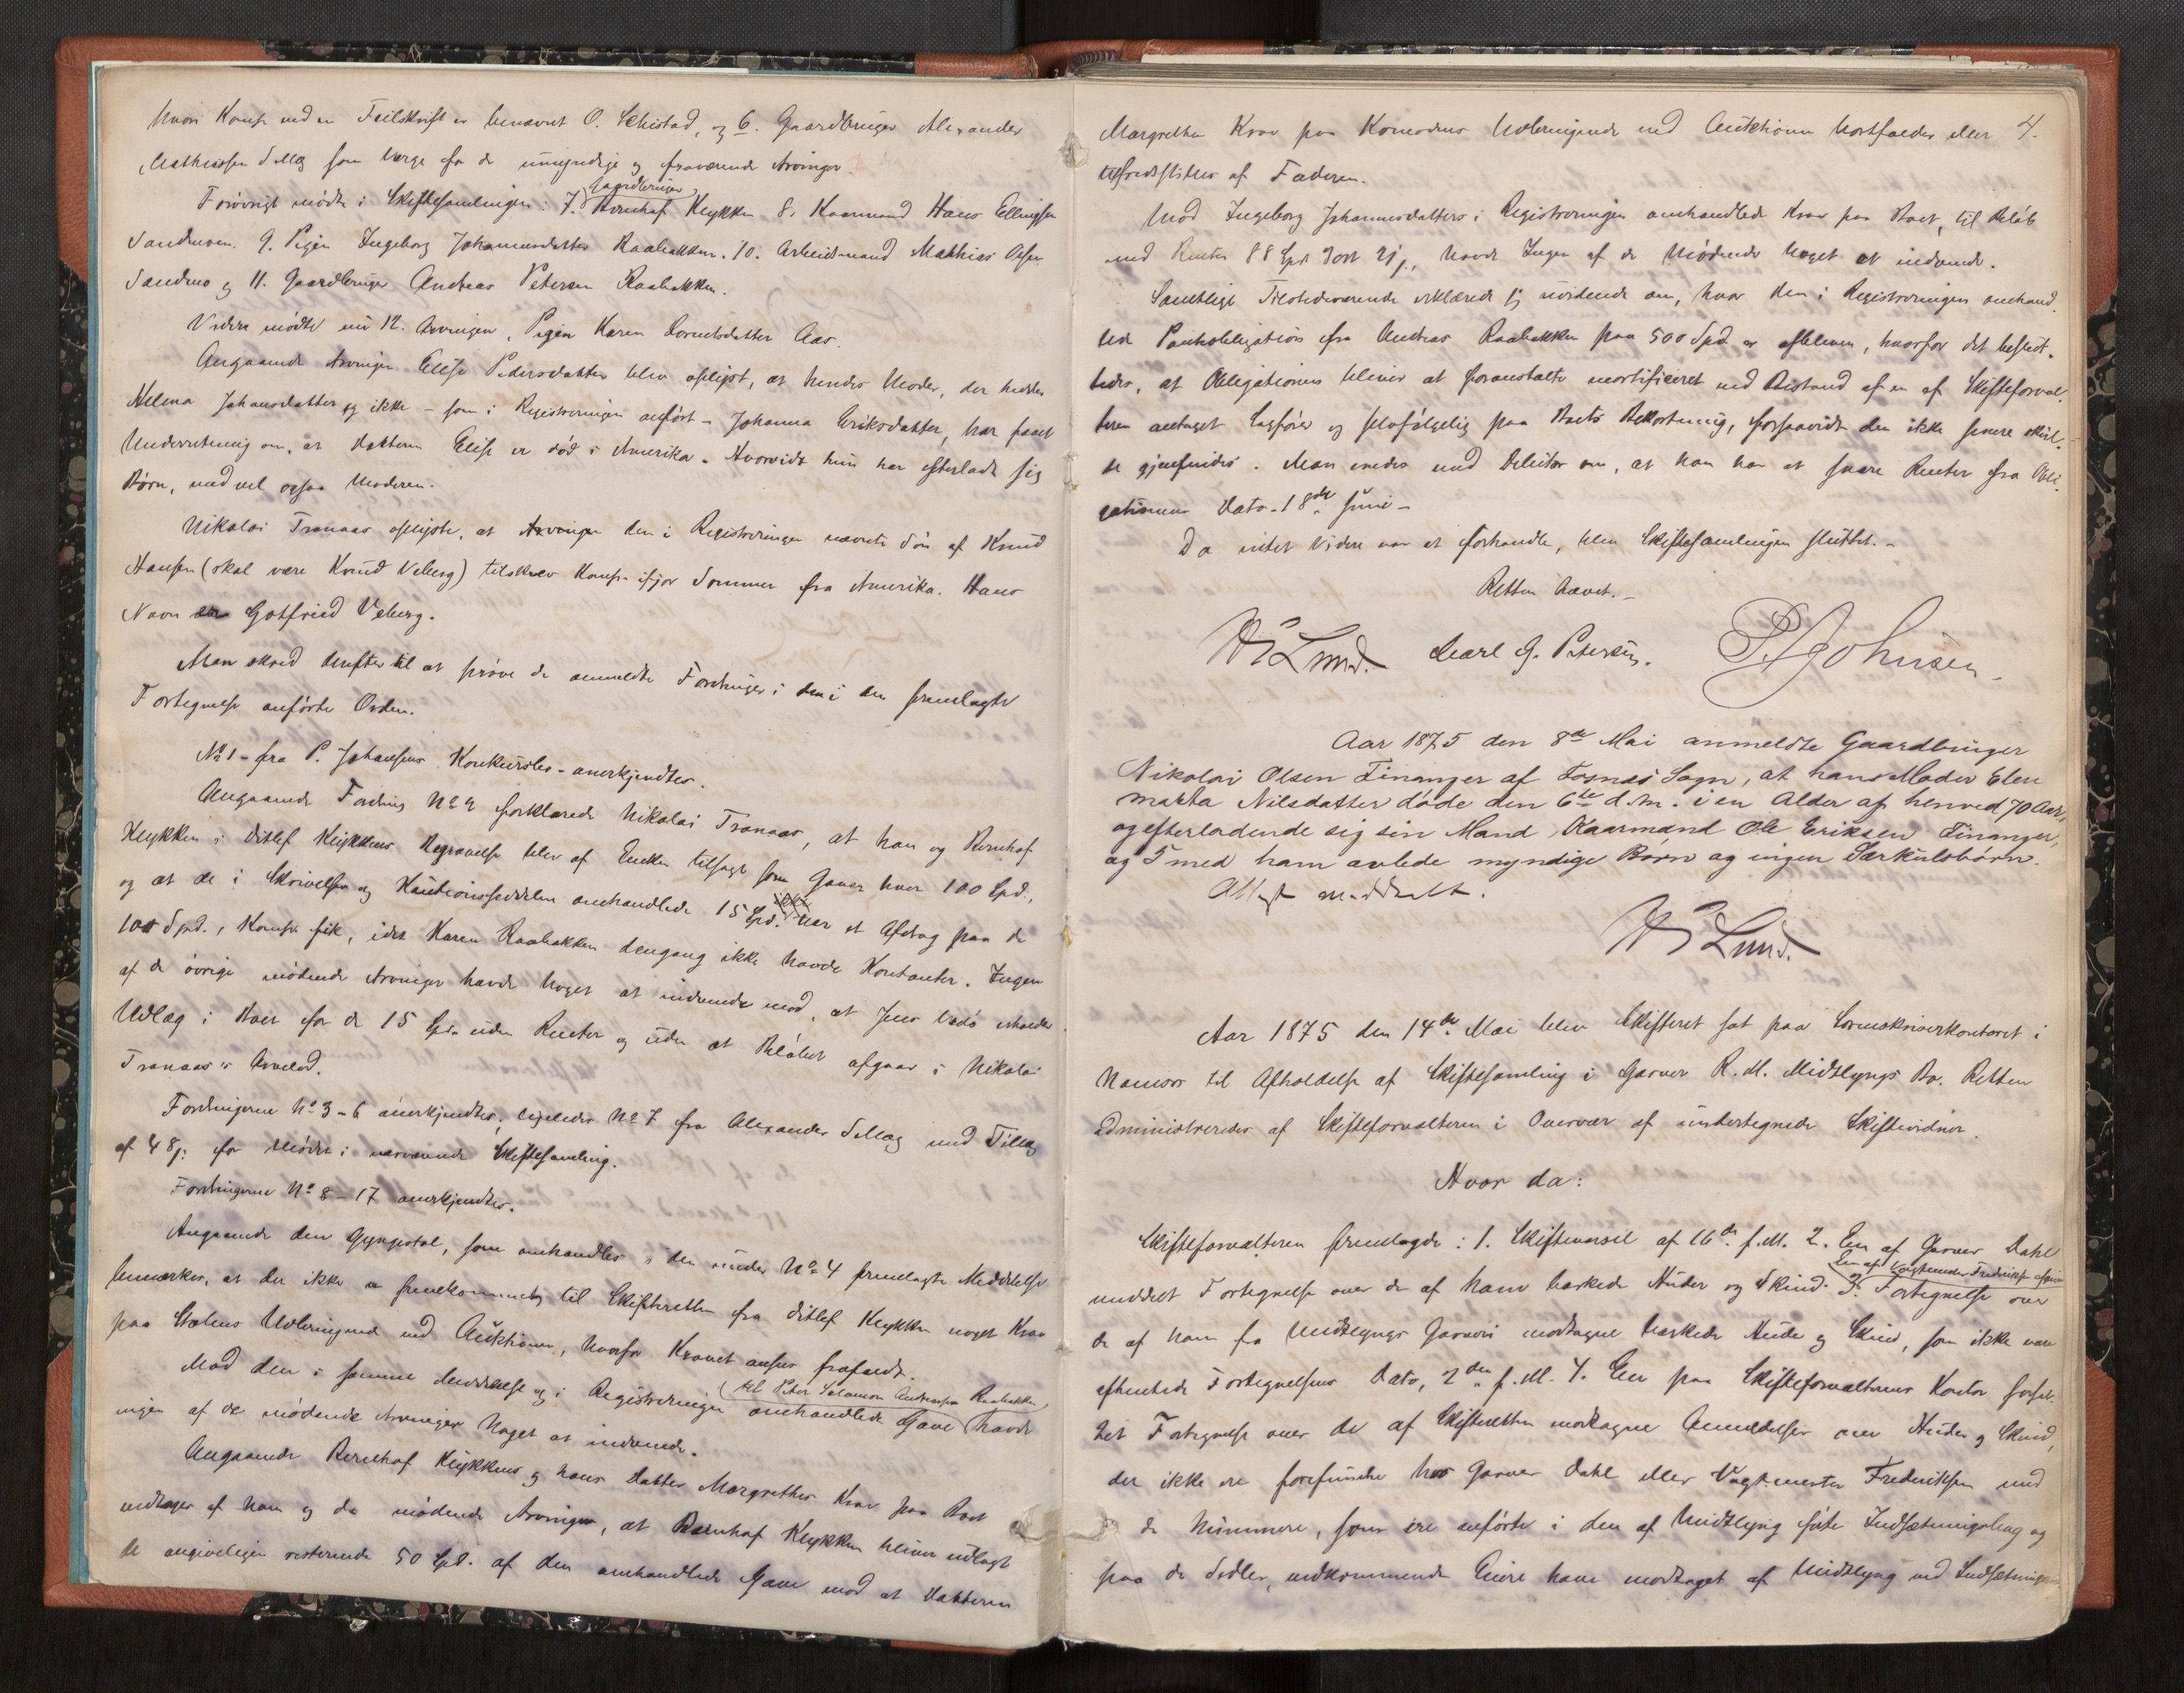 hvori Komp. ved en Feilskrift er benævnt O. Schistad, og 6. Gaardbruger Alexander
Mathiassen Sellæg som Værge for de umyndige og fraværende Arvinger.
Forøvrigt mødte i Skiftesamlingen: 7. Gaardbruger Bernhof Klykken 8. Kaarmand Hans Ellingsen
Sandmoen. 9. Pigen Ingeborg Johannesdatter Raabakken. 10. Arbeidsmand Mathias Olsen
Sandmo og 11. Gaardbruger Andreas Petersen Raabakken.
Videre mødte nu 12. Arvingen, Pigen Karen Berntsdatter Aas.
Angaaende Arvingen Elise Pedersdatter blev oplyst, at hendes Moder, der hedder
Helena Johansdatter og ikke - som i Registreringen anført - Johanna Eriksdatter, har faaet
Underretning om, at Datteren Elise er død i Amerika. Hvorvidt hun har efterladt sig
Børn, ved vel ogsaa Moderen.
Nikolai Tranaas oplyste, at Arvingen den i Registreringen nævnte Søn af Knud
Hansen (skal være Knud Veberg) tilskrev Komp. ifjor Sommer fra Amerika. Hans
Navn er Gotfried Veberg.
Man skred derefter til at prøve de anmeldte Fordringer i den i den fremlagte
Fortegnelse anførte Orden.
No 1 - fra P. Johansens Konkursbo - anerkjendtes.
Angaaende Fordring No 2 forklarede Nikolai Tranaas, at han og Bernhof
Klykken i Ditlef Klykkens Begravelse blev af Enken tilsagt som Gaver hver 100 Spd.,
og at de i Skrivelsen og Kautionsseddelen omhandlede 15 Spd. ikke var et Afdrag paa de
100 Spd., Komp. fik, idet Karen Raabakken dengang ikke havde Kontanter. Ingen
af de øvrige mødende Arvinger havde Noget at indvende mod, at Jens erholder
Udlæg i Boet for de 15 Spd. uden Renter og uden at Beløbet afgaar i Nikolai
Tranaas's Arvelod.
Fordringerne No 3-6 anerkjendtes, ligeledes No 7 fra Alexander Sellæg med Tillæg
af 48 ß for Mødet i nærværende Skiftesamling.
Fordringerne No 8-17 anerkjendtes.
Angaaende den Gyngestol, som omhandles i den under No 4 fremlagte Meddelelse
bemærkes, at der ikke er fremkommet til Skifteretten fra Ditlef Klykken noget Krav
paa Stolens Udbringende ved Auktionen, hvorfor Kravet ansees frafaldt.
Mod den i samme Meddelelse og i Registreringen omhandlede Gave til Peter Salamon Andreassen Raabakken havde
ingen af de mødende Arvinger Noget at indvende.
Angaaende Bernhof Klykkens og hans Datter Margrethes Krav paa Boet
vedtages af ham og de mødende Arvinger, at Bernhof Klykken bliver udlagt
de angiveligen resterende 50 Spd. af den omhandlede Gave mod at Datteren
Margrethes Krav paa Komodens Udbringende ved Auktionen bortfalder eller 4.
tilfredsstilles af Faderen.
Mod Ingeborg Johannesdatters i Registreringen omhandlede Krav paa Boet, til Beløb
med Renter 88 Spd 3 ort 21 ß, havde Ingen af de Mødende Noget at indvende.
Samtlige Tilstedeværende erklærede sig uvidende om, hvor den i Registreringen omhand-
lede Pantobligation fra Andreas Raabakken paa 500 Spd. er afbleven, hvorfor det beslut-
tedes, at Obligationen bliver at foranstalte mortificeret ved Bistand af en af Skifteforval-
teren antaget Sagfører og selvfølgelig paa Boets Bekostning, forsaavidt den ikke senere skul-
de gjenfindes. Man enedes med Debitor om, at han har at svare Renter fra Obli-
gationens Dato - 18de Juni -
Da intet Videre var at forhandle, blev Skiftesamlingen sluttet.-
Retten hævet.-
Lund. Carl G. Petersen. P. Johnsen
Aar 1875 den 8de Mai anmeldte Gaardbruger
Nikolai Olsen Finanger af Fosnæs Sogn, at hans Moder Elen
marta Nilsdatter døde den 6te d. M. i en Alder af henved 70 Aar,
og efterladende sig sin Mand, Kaarmand Ole Eriksen Finanger,
og 5 med ham avlede myndige Børn og ingen Særkulsbørn.
Attest meddelt.
Lund.
Aar 1875 den 14de Mai blev Skifteret sat paa Sorenskriverkontoret i
Namsos til Afholdelse af Skiftesamling i Garver R. M. Midtlyngs Bo. Retten
administreredes af Skifteforvalteren i Overvær af undertegnede Skiftevidner.
Hvor da:
Skifteforvalteren fremlagde: 1. Skiftevarsel af 16de f. M. 2. En af Garver Dahl
meddelt Fortegnelse over de af ham barkede Huder og Skind. 3. En af Vagtmester Fredriksen Fortegnelse over
de af ham fra Midtlyngs Garveri modtagne barkede Huder og Skind, som ikke vare
afhentede Fortegnelsens Dato, 2den f. M. 4. En paa Skifteforvalterens Kontor forfat-
tet Fortegnelse over de af Skifteretten modtagne Anmeldelser over Huder og Skind,
der ikke ere forefundne hos Garver Dahl eller Vagtmester Fredriksen med
de Nummere, som ere anførte i den af Midtlyng førte Indsætningsbog og
paa de Sedler, vedkommende Eiere have modtaget af Midtlyng ved Indsætningen